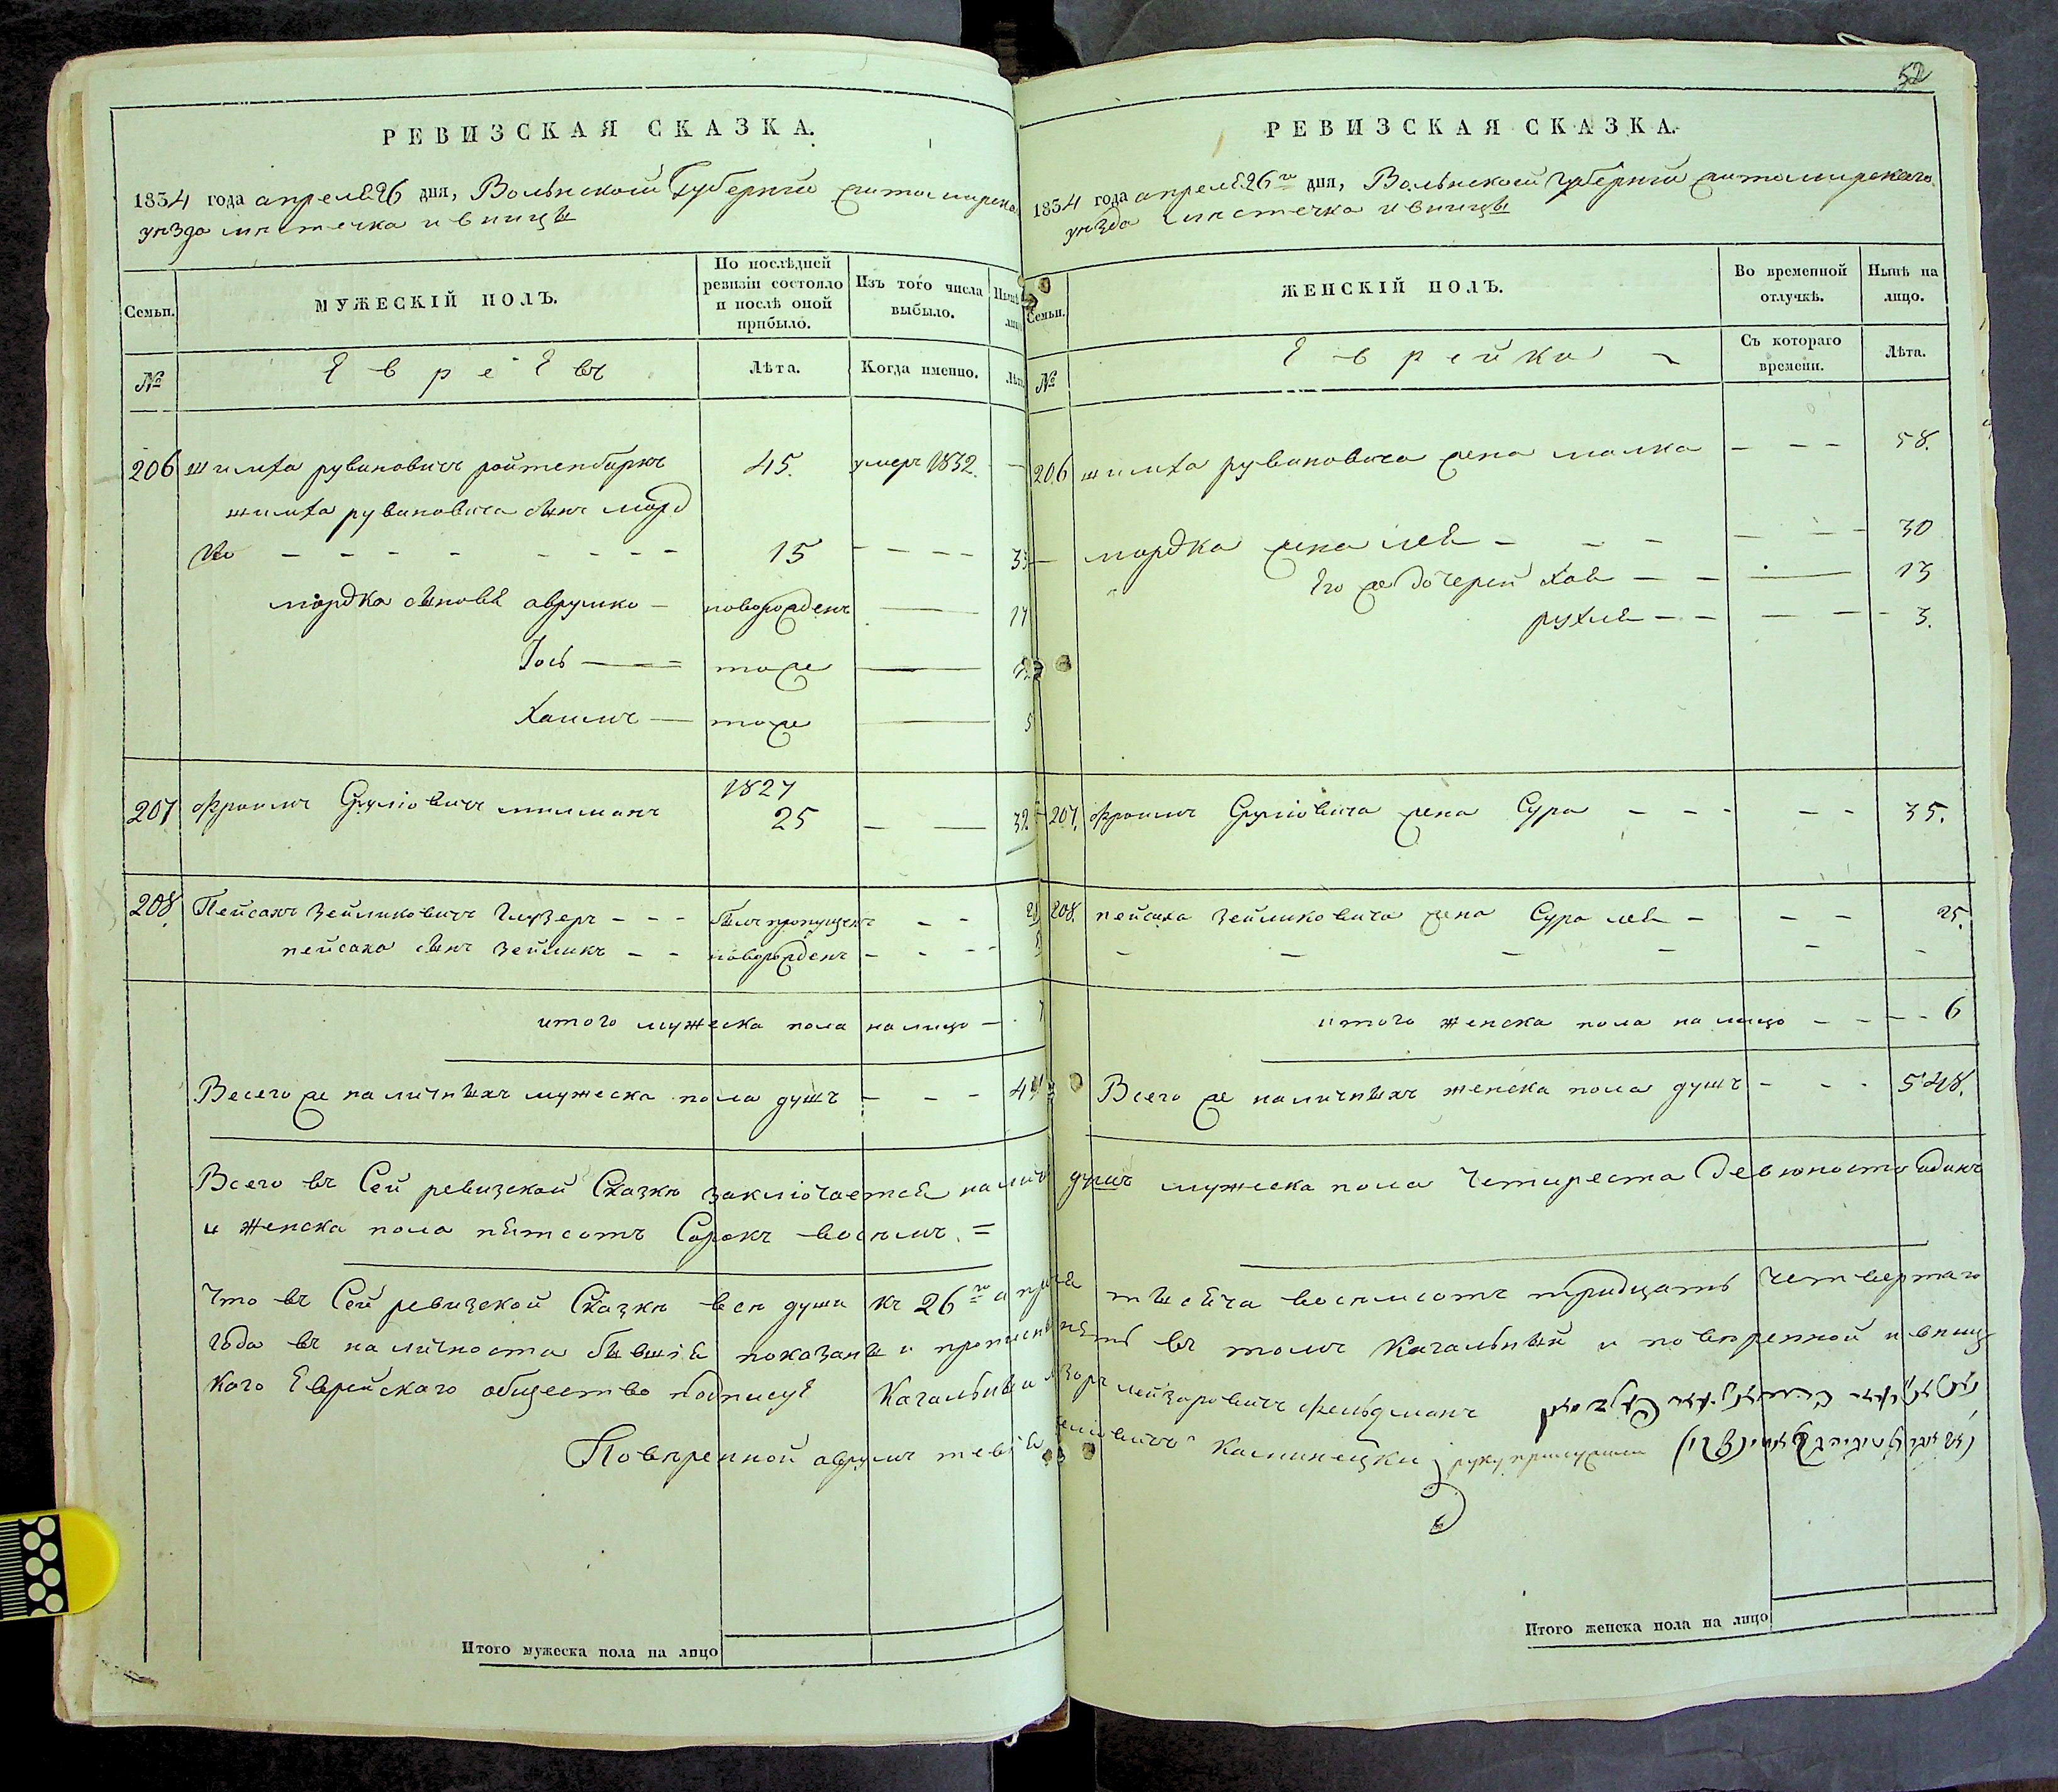 РЕВИЗСКАЯ СКАЗКА.
1834 года апреля 26 дня, Волынской Губернии житомирска
уѣзда мѣстечка ивницы
Семьи.
МУЖЕСКІЙ ПОЛЪ.
По послѣдней ревизіи состояло и послѣ оной прибыло.
Изъ того числа выбыло.
Нынѣ
№
Евреевъ
Лѣта.
Когда именно.
Лѣта
206 шимха рувиновичъ ройтенбаркъ 45. умеръ 1832. —
шимха рувиновича сынъ морд
ко — — — — 15 — — — — 33
мордка сыновя аврумко — новорожденъ — 17
Іось — тоже —
хаимъ — тоже — 5
207 фроимъ Сруліовичъ милманъ 1827 25 — — 32
208 Пейсахъ Зейликовичъ Глузеръ — — — былъ пропущенъ — —
пейсаха сынъ Зейликъ — — новорожденъ — — —
итого мужеска пола налицо — 7
Всего же наличныхъ мужеска пола душъ — — — 491
Всего въ Сей ревизской Сказкѣ заключается налич
и женска пола пятсотъ Сорокъ восѣмъ. =
Что въ Сей ревизской Сказкѣ всѣ души къ 26го апреля
года въ наличности бывшія показаны и прописны
кого Еврейскаго общество подписуя Кагальныи
Повѣренной аврумъ тевія
Итого мужеска пола на лицо
52
РЕВИЗСКАЯ СКАЗКА.
1834 года апреля 26го дня, Волынской губерніи житомирскаго
уѣзда мѣстечка ивницы
Семьи.
ЖЕНСКІЙ ПОЛЪ.
Во временной отлучкѣ.
Нынѣ на лицо.
№
Еврейки
Съ котораго времени.
Лѣта.
206 шимха рувиновича жена малка — — — 58.
— мордка жена лея — — — — — — 30
Его же дочерей хая — — — 13
рухля — — — — — 3.
207. фроимъ Сруліовича жена Сура — — — — — 35.
208. пейсаха зейликовича жена Сура лея — — — 25.
— — — — — —
итого женска пола на лицо — — — — 6
Всего же наличныхъ женска пола душъ — — — 548.
душъ мужеска пола Четиреста Девяносто одинъ
тысяча восѣмсотъ тридцать Четвертаго
въ томъ Кагальный и повѣренной ивниц
лейзоровичъ фельдманъ
Каминецки руку приложили
Итого женска пола на лицо